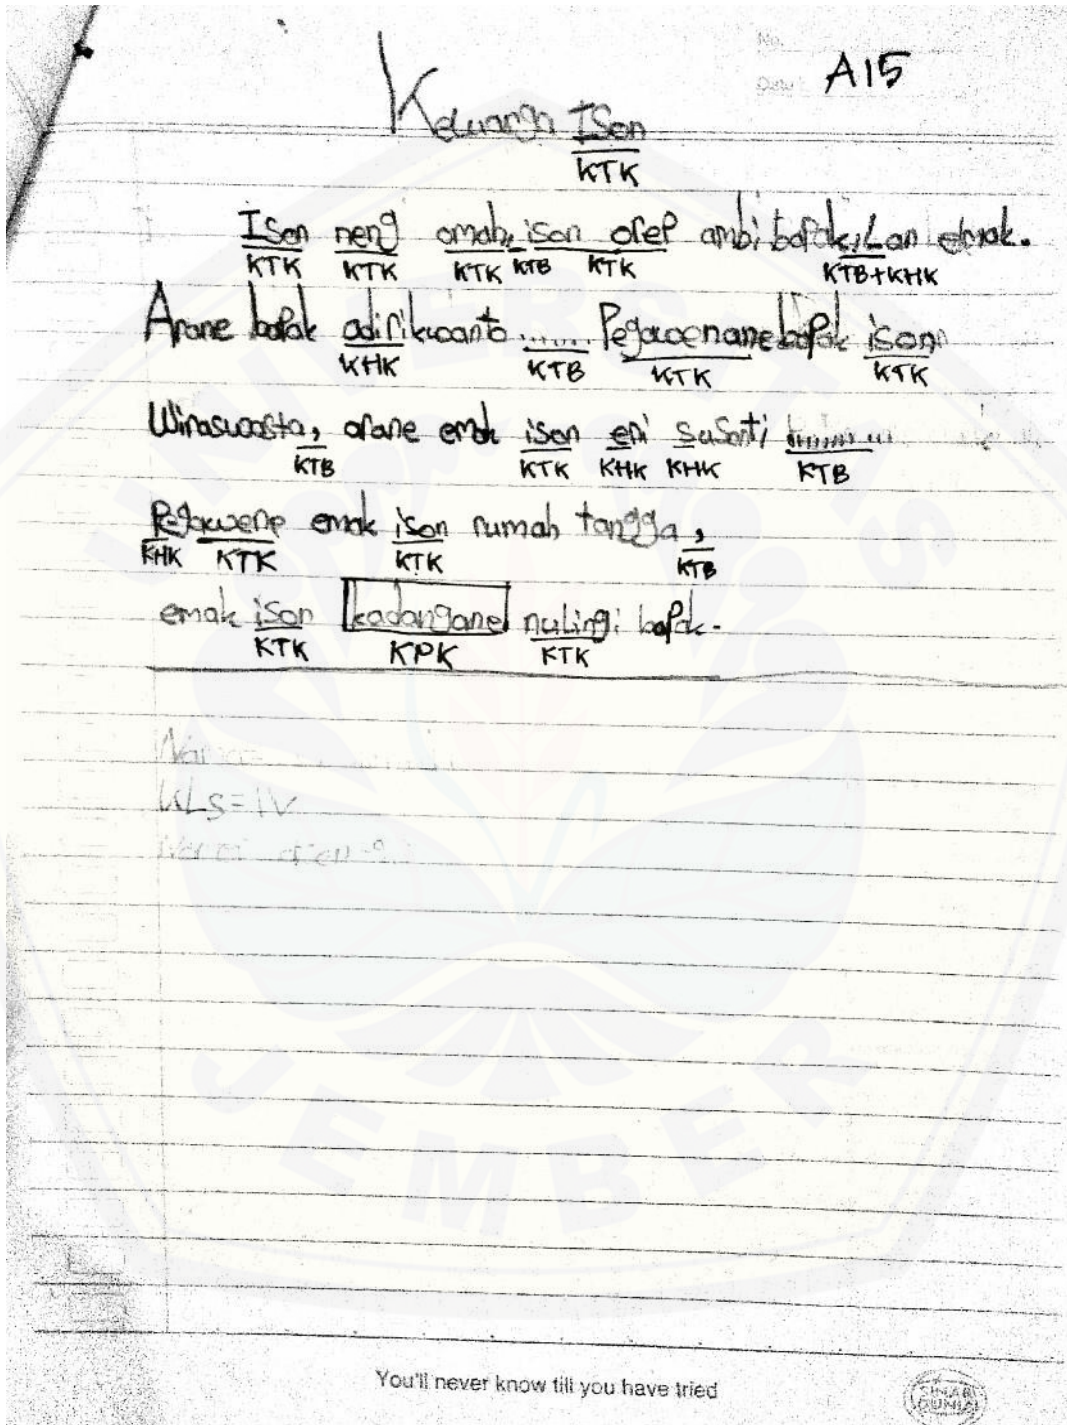 A15
Keluarga Ison
KTK
Ison neng omah, ison orep ambi bapak, Lan emak.
KTK KTK KTK KTB KTK KTB+KHK
Arane bapak adi rikwanto ...... Pegawenane bapak ison
KHK KTB KTK KTK
Wiraswasta, arane emak ison eni susanti
KTB KTK KHK KHK KTB
Pegawene emak ison rumah tangga,
KHK KTK KTK KTB
emak ison kadangane nulingi bapak.
KTK KPK KTK
KLS = IV
You'll never know till you have tried
SINAR DUNIA
UNIVERSITAS
JEMBER